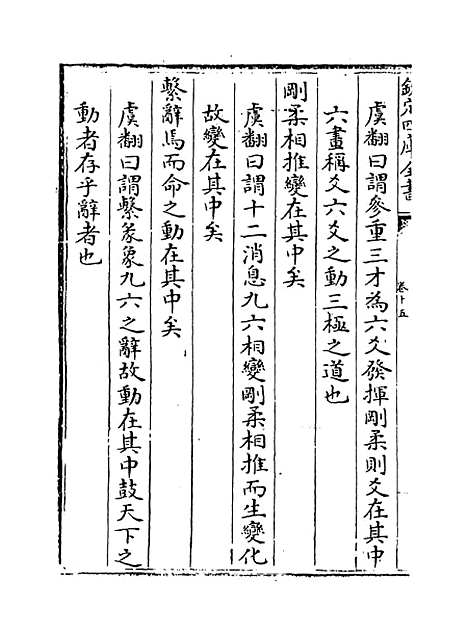 欽定四庫全書
卷十五
虞翻曰謂參重三才為六爻發揮剛柔則爻在其中
六畫稱爻六爻之動三極之道也
剛柔相推變在其中矣
虞翻曰謂十二消息九六相變剛柔相推而生變化
故變在其中矣
繫辭焉而命之動在其中矣
虞翻曰謂繫彖象九六之辭故動在其中鼓天下之
動者存乎辭者也